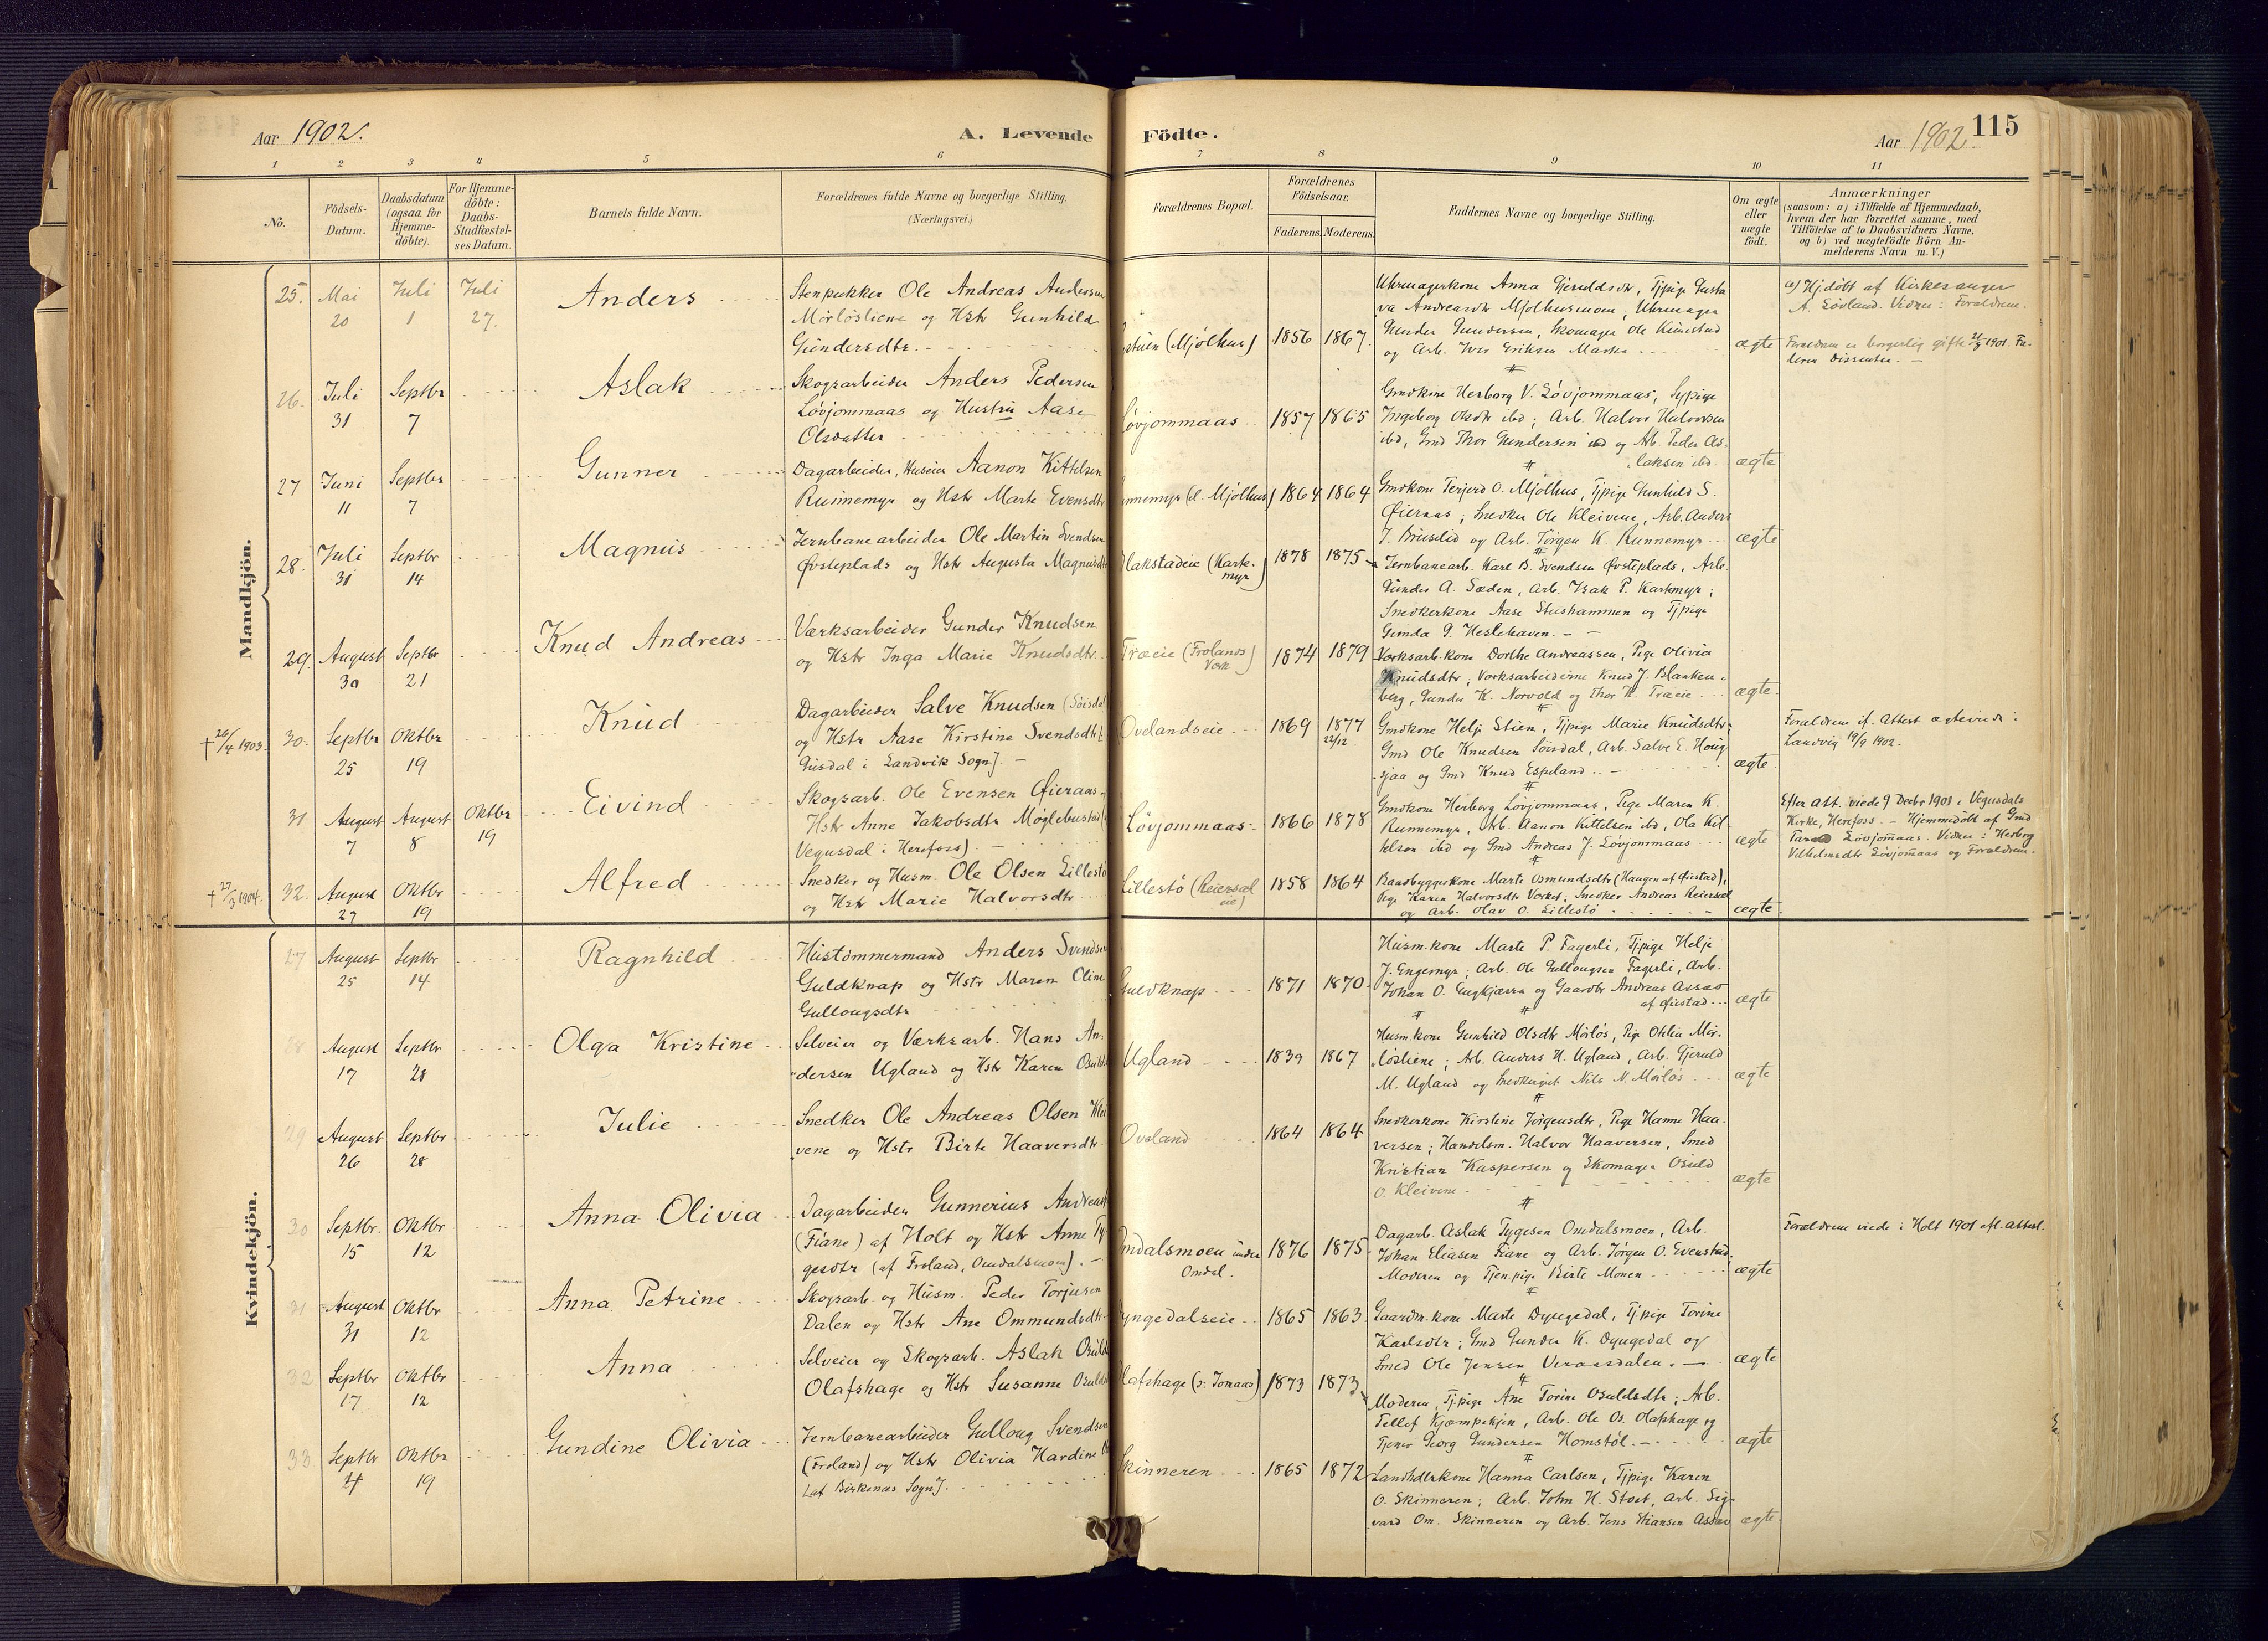 Aar 1902.
A. Levende Födte.
Aar 1902
115
1 2 3 4 5 6 7 8 9 10 11
No.
Födsels-Datum.
Daabsdatum (ogsaa for Hjemme-döbte).
For Hjemme-döbte: Daabs-Stadfæstel-ses Datum.
Barnets fulde Navn.
Forældrenes fulde Navne og borgerlige Stilling. (Næringsvei.)
Forældrenes Bopæl.
Forældrenes Födselsaar.
Faderens. Moderens.
Faddernes Navne og borgerlige Stilling.
Om ægte eller uægte født.
Anmærkninger
(saasom: a) i Tilfælde af Hjemmedaab,
hvem der har forrettet samme, med
Tilföielse af to Daabsvidners Navne,
og b) ved uægtefödte Börn An-
melderens Navn m. V.)
Mandkjön.
25. Mai 20 Juli 1 Juli 27. Anders
Stenpukker Ole Andreas Andersen
Mörlösliene og Hstr Gunhild
Gundersdtr.
(Mjølhus) 1856 1867
Uhrmagerkone Anna Gjeruldsdtr, Tjpige Gusta
va Andreasdtr Mjølhusmoen, Uhrmager
Gunder Gundersen, Skomager Ole
og Arb. Iver Eriksen
ægte
a) Hj.døbt af Kirkesanger
A. Løvland. Vidner: Forældrene.
Forældrene er borgerlig gifte 1901. Fa-
deren Dissenter. —
26. Juli 31 Septbr 7 Aslak
Skogsarbeider Anders Pedersen
Løvjommaas og Hustru Aase
Olsdatter
Løvjommaas 1857 1865
Gmdkone Herborg V. Løvjommaas, Sypige
Ingeborg Olsdtr ibd; Arb. Halvor Halvorsen
ibd, Gmd Thor Gundersen ibd og Arb. Peder As-
laksen ibd.
ægte
27 Juni 11 Septbr 7 Gunner
Dagarbeider, Huseier Aanon Kittelsen
Runnemyr og Hstr Marte Evensdtr
nnemyr (Mjølhus) 1864 1864
Gmdkone Terjerd O. Mjølhus, Tjpige Gunhild S.
Øieraas; Snedker Ole Kleivene, Arb. Anders
J. Bruslid og Arb. Jørgen K. Runnemyr
ægte
28. Juli 31 Septbr 14 Magnus
Jernbanearbeider Ole Martin Svendsen
Øvsteplads og Hstr Augusta Magnusdtr
Blakstadeie (Karte-myr) 1878 1875
Jernbanearb. Karl B. Svendsen Øvsteplads, Arb.
Gunder A. Sæden, Arb. Isak P. Kartemyr;
Snedkerkone Aase Stushammen og Tjpige
Gunda G. Heslehaven. — —
29. August 30 Septbr 21 Knud Andreas
Værksarbeider Gunder Knudsen
og Hstr Inga Marie Knudsdtr.
Træeie (Frolands Værk) 1874 1879
Værksarb.kone Dorthe Andreassen, Pige Olivia
Knudsdtr; Værksarbeiderne Knud J. Blanken-
berg, Gunder K. Norvold og Thor K. Traeie
ægte
† 28/4 1903. 30. Septbr 25 Oktbr 19 Knud
Dagarbeider Salve Knudsen (Søisdal
og Hstr Aase Kirstine Svendsdtr
Gusdal i Landvik Sogn]. —
Ovelandseie 1869 1877 22/12
Gmdkone Helje Stien, Tjpige Marie Knudsdtr;
Gmd Ole Knudsen Søisdal, Arb. Salve E. Houg
sjaa og Gmd Knud Espeland.
ægte
Forældrene if. Attest ægteviede i
Landvig 19/9 1902.
31 August 7 August 8 Oktbr 19 Eivind
Skogsarb. Ole Evensen Øieraas
Hstr Anne Jakobsdtr Møglebustad
Vegusdal i Herefoss). —
Løvjommaas 1866 1878
Gmdkone Herborg Løvjommaas, Pige Maren K.
Runnemyr, Arb. Aanon Kittelsen ibd, Ola Kit-
telsen ibd og Gmd Andreas J. Løvjommaas
ægte
Efter Att. viede 9 Decbr 1901 i Vegusdals
Kirke, Herefoss. — Hjemmedøbt af Gmd
Løvjommaas. Vidner: Herborg
Vilhelmsdtr Løvjommaas og Forældrene.
† 27/3 1904. 32. August 27 Oktbr 19 Alfred
Snedker og Husm. Ole Olsen Lillestø
og Hstr Marie Halvorsdtr
Lillestø (Reiersøl eie) 1858 1864
Baadbyggerkone Marte Osmundsdtr (Haugen af Øiestad),
Pige Karen Halvorsdtr Værket; Snedker Andreas Reiersøl
og Arb. Olav O. Lillestø
ægte
Kvindekjön.
27 August 25 Septbr 14 Ragnhild
Hustømmermand Anders Svendsen
Guldknap og Hstr Maren Oline
Gullougsdtr
Guldknap 1871 1870
Husm.kone Marte P. Fagerli, Tjpige Helje
J. Engemyr; Arb. Ole Gullougsen Fagerli, Arb.
Johan O. Engkjærn og Gaardbr Andreas Assev
af Øiestad
ægte
28 August 17 Septbr 28 Olga Kristine
Selveier og Værksarb. Hans An-
dersen Ugland og Hstr Karen Osulds
Ugland 1839 1867
Husm.kone Gunhild Olsdtr Mørløs, Pige Otilia Mør-
løsliene; Arb. Anders H. Ugland, Arb. Gjeruld
M. Ugland og Snedkergut Nils N. Mørløs
ægte
29 August 26 Septbr 28 Julie
Snedker Ole Andreas Olsen Klei
vene og Hstr Birte Haaversdtr
Oveland 1864 1864
Snedkerkone Kirstine Jørgensdtr, Pige Hanne Haa-
versen; Handelsm. Halvor Haaversen, Smed
Kristian Kaspersen og Skomager Osuld
O. Kleivene
ægte
30 Septbr. 15 Oktbr 12 Anna Olivia
Dagarbeider Gunnerius Andreas
(Fiane) af Holt og Hstr Anne Ty-
gesdtr (af Froland, Omdalsmoen). —
mdalsmoen under Omdal. 1876 1875
Dagarb. Aslak Tygesen Omdalsmoen, Arb.
Johan Eliasen Fiane og Arb. Jørgen O. Evenstad,
Moderen og Tjen.pige Birte Monen
ægte
Forældrene viede i Holt 1901 efl. Attest.
31 August 31 Oktbr 12 Anna Petrine
Skogsarb. og Husm. Peder Torjusen
Dalen og Hstr Ane Ommundsdtr
yngedalseie 1865 1863
Gaardm.kone Marte Dyngedal, Tjpige Torine
Karlsdtr; Gmd Gunder K. Dyngedal og
Smed Ole Jensen Veraasdalen. —
ægte
32 Septbr 17 Oktbr 12 Anna
Selveier og Skogsarb. Aslak Osulds
Olafshage og Hstr Susanne Osulds
lafshage (Jomaas) 1873 1873
Moderen, Tj.pige Ane Torine Osuldsdtr; Arb.
Tellef Kjæmpekjen, Arb. Ole Os. Olafshage og
Tjener Georg Gundersen Homstøl. —
ægte
33 Septbr 4 Oktbr 19 Gundine Olivia
Jernbanearbeider Gulloug Svendsen
(Froland) og Hstr Olivia Hardine
[af Birkenæs Sogn].
Skinneren 1865 1872
Landhdlrkone Hanna Carlsen, Tjpige Karen
O. Skinneren; Arb. John H. Stoet, Arb. Sig-
vard Om. Skinneren og Arb. Jens Assev
ægte